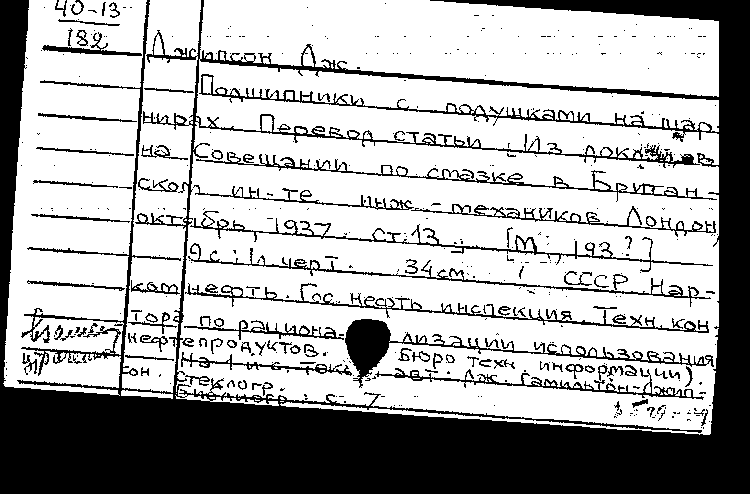 40-13
182
Джипсон, Дж.
Подшипники с подушками на шар-
нирах. Перевод статьи [Из
на Совещании по смазке в Британ-
ском ин-те инж-механиков. Лондон,
октябрь, 1937. ст. 13. [М., 193?]
9с; 1л черт. 34см. ( СССР Нар-
комнефть. Гос. нефть инспекция. Техн. кон-
тора по рациона лизации использования
нефтепродуктов. Бюро техн. информации).
На 1 и с. авт: Дж. Гамильтон-Джип-
сон.
Стеклогр.
Библиогр: с. 7
взамен